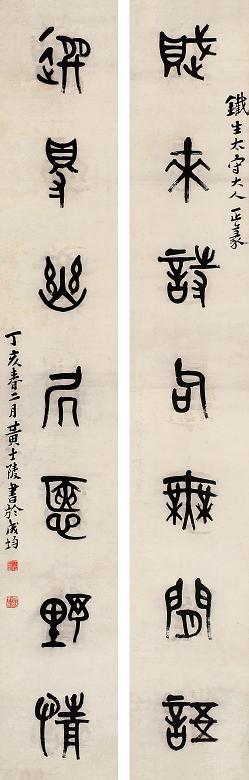 鐵生太守大人正篆
賦來詩句無閒語
得幽居愜野情
丁亥春二月黃士陵書於成均